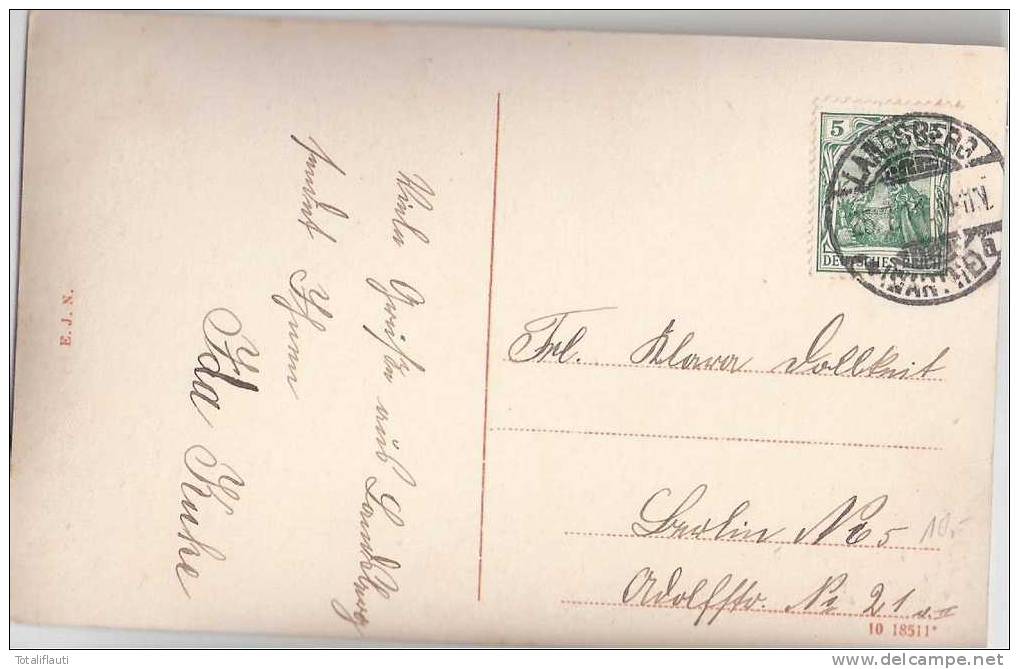 Viele Grüße aus Landsberg
sendet Ihnen
Ida Kuke
E. J. N.
5
DEUTSCHES REICH
LANDSBERG
10-11 V.
Frl. Klara Dollkeit
Berlin No 5
Adolfstr. No 21 v. II
10.-
10 18511*
Totaliflauti
delcampe.net